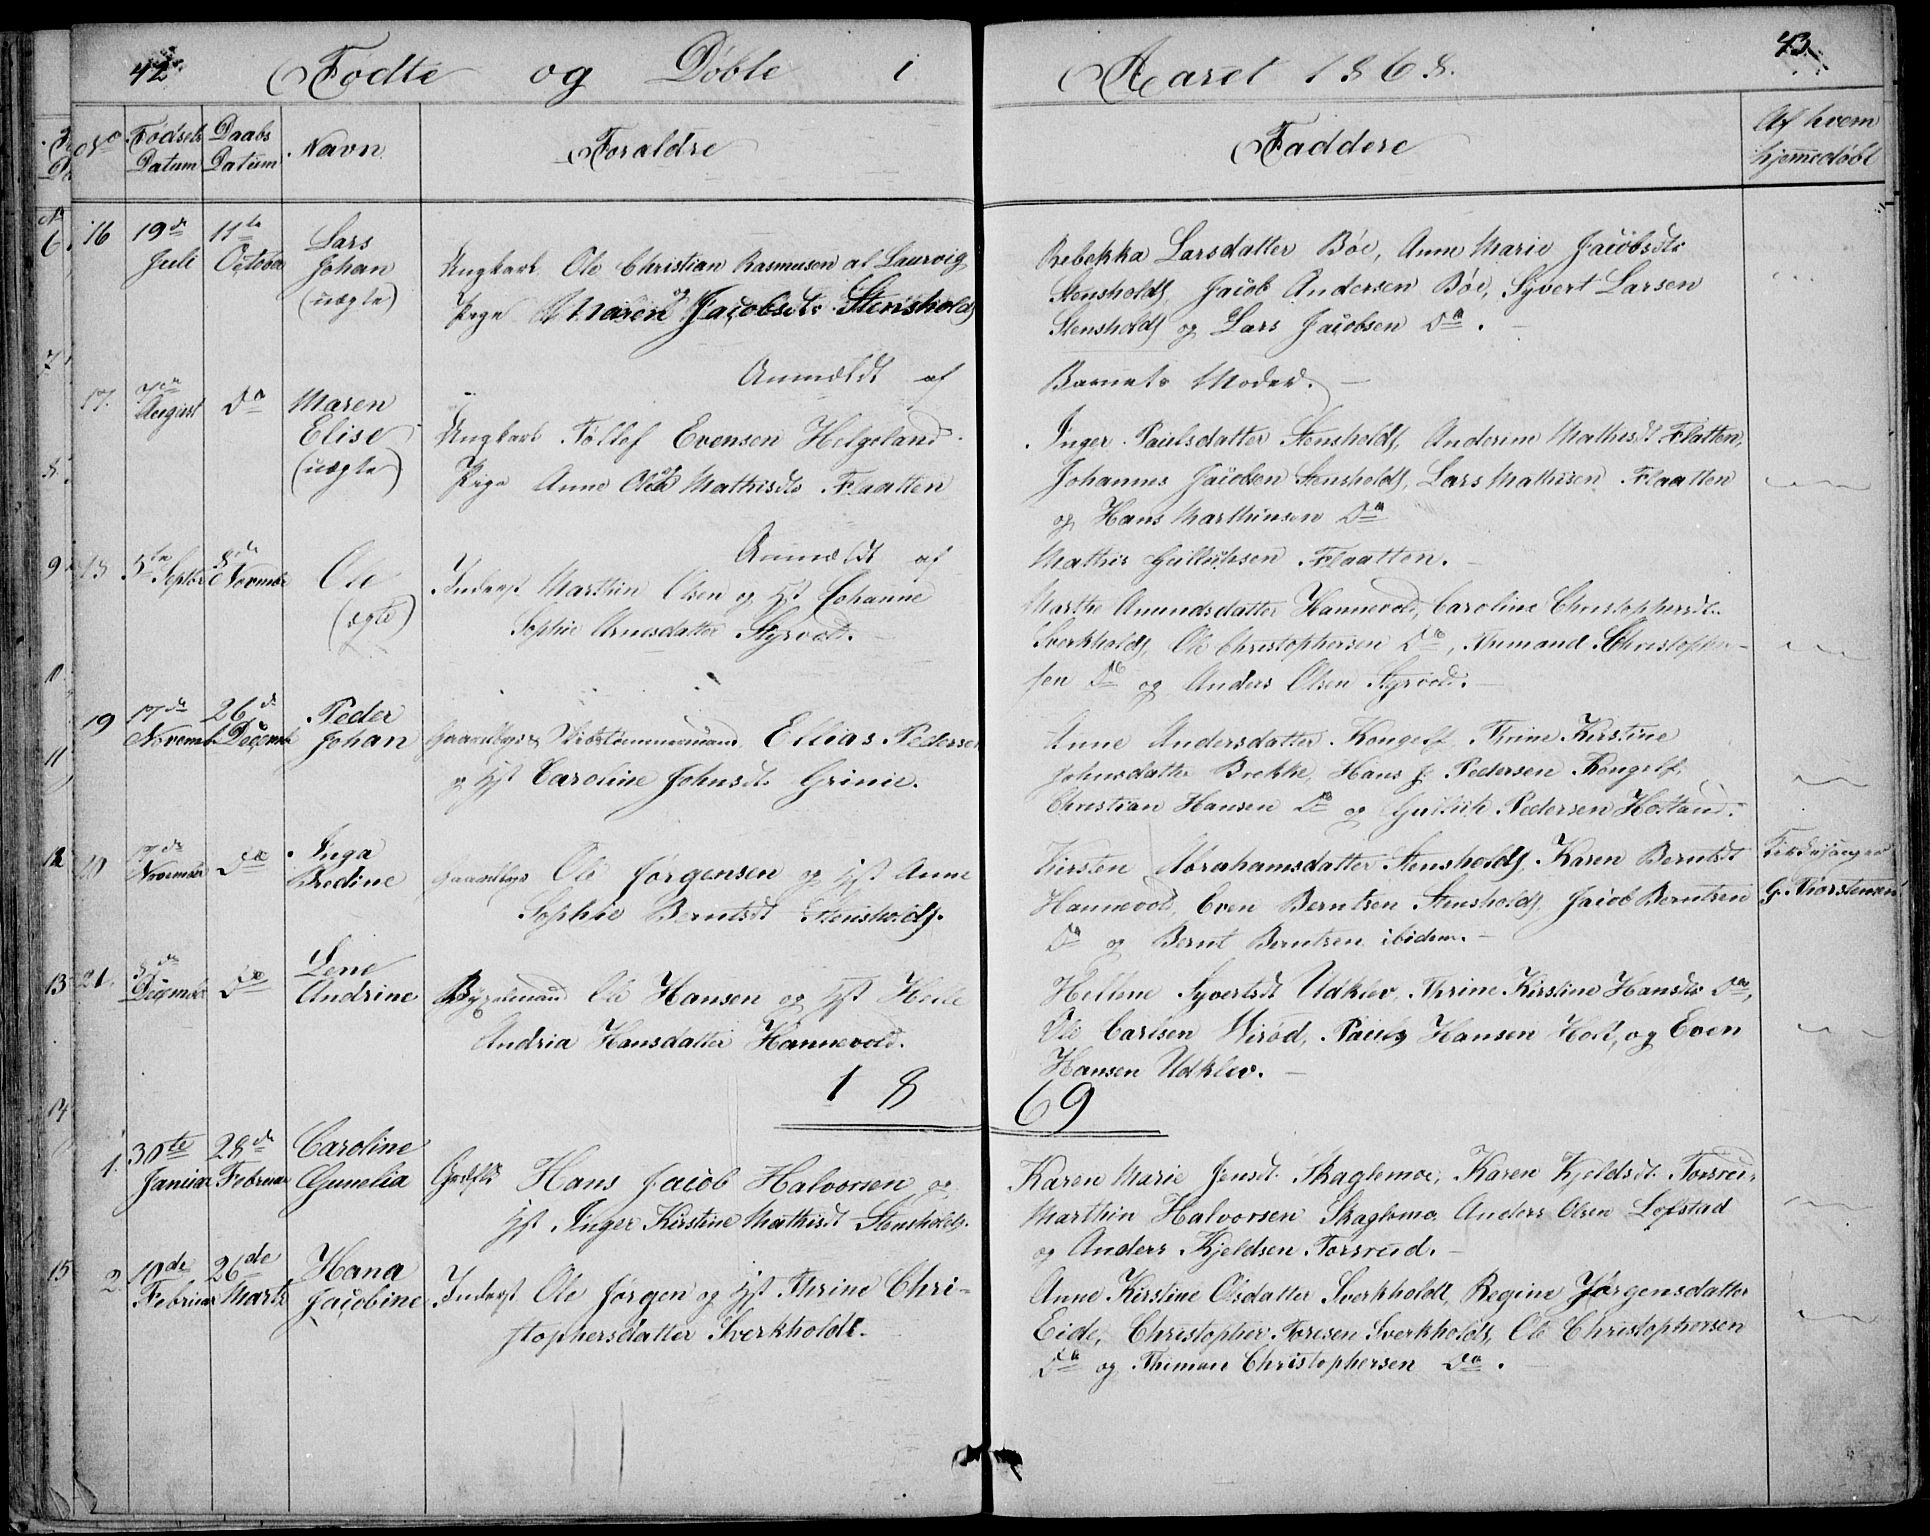 42 Fødte og Døbte i Aaret 1868. 43
No Fødsels Datum Daabs Datum Navn Foraldre Faddere Af hvem hjemmedøbt
16 19de Juli 11te October Lars Johan (uægte)
Ungkarl Ole Christian Rasmusen af Laurvig
og
Pige Maren Jacobsdtr Stensholdt
Rebekka Larsdatter Bøe, Anne Marie Jacobsdtr
Stensholdt, Jacob Andersen Bøe, Syvert Larsen
Stensholdt og Lars Jacobsen Do.
Anmeldt af Barnets Moder.
17. August Do Maren Elise (uægte)
Ungkarl Tollef Evensen Helgeland
og
Pige Anne Mathisdtr Flaatten
Inger Paulsdatter Stensholdt, Anderine Mathisdt Flatten,
Johannes Jacobsen Stensholdt, Lars Mathisen Flaatten
og Hans Marthinsen Do
Anmeldt af Mathis Gulliksen Flaatten.
18 5te Septbr 8de Novembr Ole (ægte)
Inderst Marthin Olsen og Hst Johanne
Sophie Arnesdatter Styrvold.
Marthe Amundsdatter Hannevold, Caroline Christophersdt.
Sverkholdt, Ole Christophersen Do, Christopher-
sen Do og Anders Olsen Styrvold.
19 17de Novemb. 26d Decemb Peder Johan
Ellias Pedersen
og Hst Caroline Johnsdtr Grinie.
Anne Andersdatter Kongelf, Thrine Kirstine
Johnsdatter Brekke, Hans J. Pedersen Kongelf,
Christian Hansen Do og Gullich Pedersen Holtand.
20 17de November Do Inga Bredine
Gaardbr. Ole Jørgensen og Hst Anne
Sophie Berntsdt Stensholdt.
Kirsten Abrahamsdatter Stensholdt, Karen Berntsdt
Hannevold, Even Berntsen Stensholdt, Jacob Berntsen
Do og Bernt Berntsen ibidem.
Kirkesanger G. Thorstensen
21. 8de December Do Lene Andrine
Bygselmand Ole Hansen og Hst Helle
Andria Hansdatter Hannevold.
Hellene Syvertsdt Udklev, Thrine Kirstine Hansdtr Do,
Ole Carlsen Virød, Pauls Hansen Holt, og Even
Hansen Udklev.
1869
1. 30te Januar 28de Februar Caroline Gunelia
Hans Jacob Halvorsen og
Hst Inger Kirstine Mathisdt Stensholdt.
Karen Marie Jensdt. Skaglemoe, Karen Kjeldsdt. Torsrud,
Marthin Halvorsen Skaglemo, Anders Olsen Løfstad
og Anders Kjeldsen Torsrud.
2. 10de Februar 26de Marts Hana Jacobine
Inderst Ole Jørgen og Hst Thrine Chri-
stophersdatter Sverkholdt.
Anne Kirstine Olsdatter Sverkholdt, Regine Jørgensdatter
Eide, Christopher Toresen Sverkholdt, Ole Christophersen
Do og Thimon Christophersen Do.